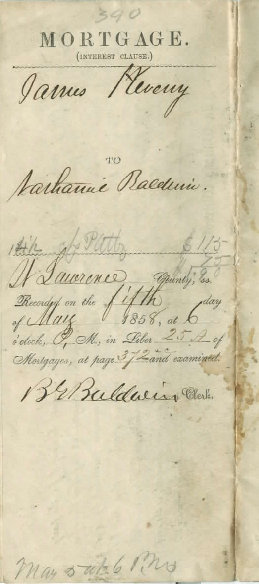 390
MORTGAGE.
(INTEREST CLAUSE.)
James Heveny
TO
Nathaniel Baldwin.
$ 115
St Lawrence County, ss.
Recorded on the fifth day
of May 1858, at 6
o'clock, P. M., in Liber 25 A of
Mortgages, at page 372 and examined.
B G Baldwin Clerk.
May 5 at 6 P.M.